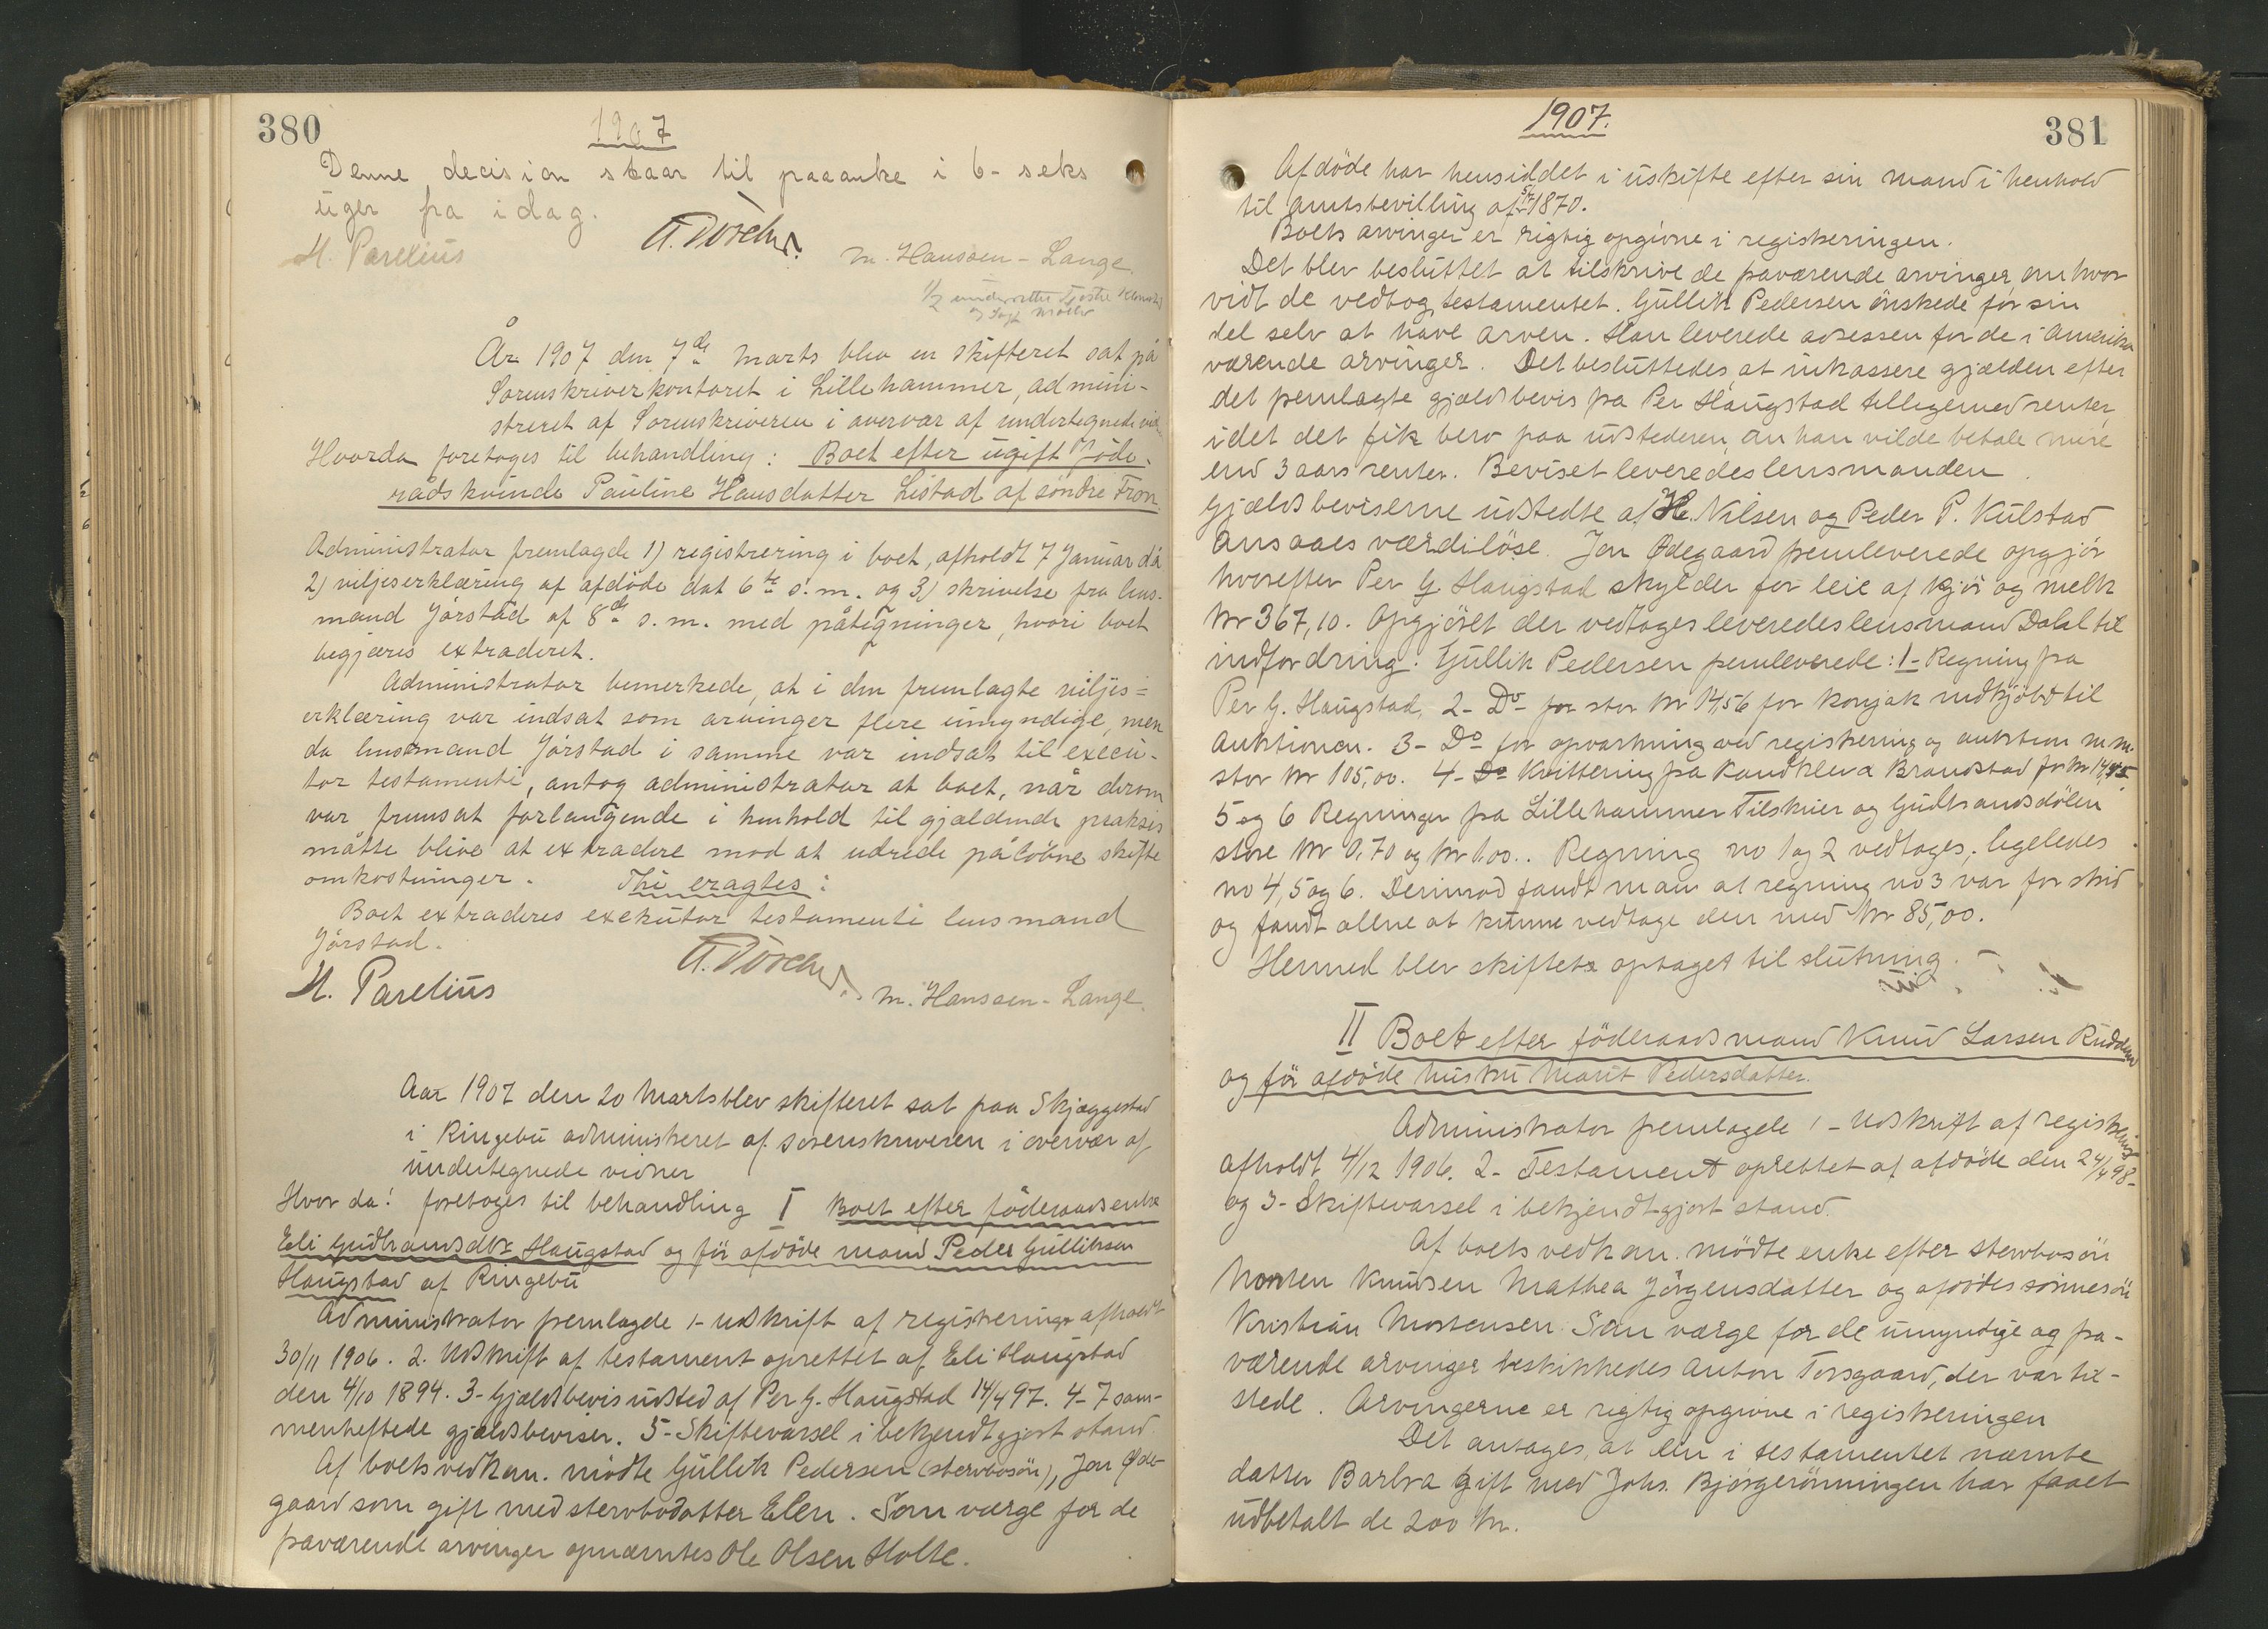 380
1907
Denne decision staar til paaanke i 6 - seks
uger fra idag.
H. Parelius
M. Hanssen - Lange
År 1907 den 7de Marts blev en skifteret sat på
Sorenskriverkontoret i Lillehammer, admini-
streret af Sorenskriveren i overvær af undertegnede
Hvorda foretoges til behandling: Boet efter ugift føde-
rådskvinde Pauline Hansdatter Listad af søndre Fron.
Administrator fremlagde 1) registrering i boet, afholdt 7 Januar då
2) viljeserklæring af afdøde dat 6te s.m. og 3) skrivelse fra lens-
mand Jørstad af 8de s.m. med påtegninger, hvori boet
begjæres extraderet.
Administrator bemerkede, at i den fremlagte viljes=
erklæring var indsat som arvinger flere umyndige, men
da lensmand Jørstad i samme var indsat til execu-
tor testamenti, antog administrator at boet, når derom
var fremsat forlangende i henhold til gjældende praksis
måtte blive at extradere mod at udrede påløbne skifte
omkostninger. Thi eragtes:
Boet extraderes exekutor testamenti lensmand
Jørstad.
H. Parelius
M. Hanssen - Lange.
Aar 1907 den 20 Marts blev skifteret sat paa Skjæggestad
i Ringebu administreret af sorenskriveren i overvær af
undertegnede vidner
Hvor da! foretoges til behandling I Boet efter føderaadsenke
Eli Gudbrandsdtr Haugstad og før afdøde mand Peder Gulliksen
Haugstad af Ringebu
Administrator fremlagde 1- udskrift af registrering afholdt
30/11 1906. 2. Udskrift af testament oprettet af Eli Haugstad
den 4/10 1894. 3- Gjældsbevis udsted af Per G. Haugstad 14/4 97. 4- 7 sam-
menheftede gjældsbeviser. 5- Skiftevarsel i bekjendtgjort stand.
Af boets vedkom. mødte Gullik Pedersen (stervbosøn), Jon Øde-
gaard som gift med stervbodatter Elen. Som værge for de
fraværende arvinger opnævntes Ole Olsen Holte.
1907.
381
Afdøde har hensiddet i uskifte efter sin mand i henhold
til amtsbevilling af 1870.
Boets arvinger er rigtig opgivne i registreringen.
Det blev besluttet at tilskrive de fraværende arvinger, om hvor
vidt de vedtog testamentet. Gullik Pedersen ønskede for sin
del selv at have arven. Han leverede adressen for de i Amerika
værende arvinger. Det besluttedes, at inkassere gjælden efter
det fremlagte gjældsbevis fra Per Haugstad tilligemed renter,
idet det fik bero paa udstederen, om han vilde betale mere
end 3 aars renter. Beviset leveredes lensmanden
Gjældsbeviserne udstedte af H. Nilsen og Peder P. Kulstad
ansaaes værdiløse. Jon Ødegaard fremleverede opgjør
hvorefter Per G. Haugstad skylder for leie af kjør og melk
Kr 367,10. Opgjøret der vedtoges leveredes lensmand Dalal til
indfordring. Gullik Pedersen fremleverede: 1- Regning fra
Per G. Haugstad, 2- Do - for stor Kr 14,56 for konjak indkjøbt til
Auktionen. 3- Do for opvartning ved registrering og auktion m.m.
stor Kr 105,00. 4- Do Kvittering fra Brandstad for Kr 14,45.
5 og 6 Regninger fra Lillehammer Tilskuer og Gudbrandsdølen
store Kr 0,70 og Kr 1.00.. Regning no 1 og 2 vedtoges, ligeledes
no 4, 5 og 6. Derimod fandt man at regning no 3 var for stor
og fandt allene at kunne vedtage den med Kr 85,00.
Hermed blev skiftet optaget til slutning.
II Boet efter føderaadsmand Knud Larsen
og før afdøde hustru Marit Pedersdatter.
Administrator fremlagde 1 - Udskrift af registrering
afholdt 4/12 1906. 2- Testament oprettet af afdøde den 24/4 98-
og 3- Skiftevarsel i bekjendtgjort stand.
Af boets vedkom. mødte enke efter stervbosøn
Morten Knudsen Mathea Jørgensdatter og afdødes sønnesøn
Kristian Mortensen. Som værge for de umyndige og fra-
værende arvinger beskikkedes Anton Torsgaard, der var til-
stede. Arvingerne er rigtig opgivne i registreringen
Det antages, at den i testamentet nævnte
datter Barbra gift med Johs. Bjørgerønningen har faaet
udbetalt de 200 Kr.